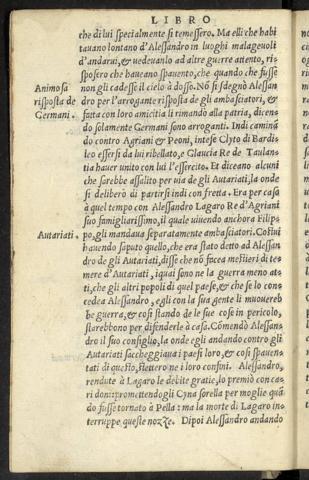 LIBRO
che di lui specialmente si temessero. Ma elli che habi
tauano lontano d'Alessandro in luoghi malageuoli
d'andarui, & uedeuanlo ad altre guerre attento, ri-
sposero che haueano spauento, che quando che fusse
non gli cadesse il cielo à dosso. Nõ si sdegnò Alessan
Animosa
risposta de
Germani.
dro per l'arrogante risposta de gli ambasciatori, &
fatta con loro amicitia li rimandò alla patria, dicen-
do solamente Germani sono arroganti. Indi caminã
do contro Agriani & Peoni, intese Clyto di Bardi-
leo essersi da lui ribellato, e Glaucia Re de Taulan-
tia hauer unito con lui l'essercito. Et diceano alcuni
che sarebbe assalito per uia de gli Autariati, la onde
si deliberò di partirsi indi con fretta. Era per caso
à quel tempo con Alessandro Lagaro Re d'Agriani
suo famigliarissimo, il quale uiuendo anchora Filip-
Autariati.
po, gli mandaua separatamente ambasciatori. Costui
hauendo saputo quello, che era stato detto ad Alessan
dro de gli Autariati, disse che nõ facea mestieri di te-
mere d'Autariati, i quai sono ne la guerra meno at-
ti, che gli altri popoli di quel paese, & che se lo con-
cedea Alessandro, egli con la sua gente li muouereb
be guerra, & cosi stando de le sue cose in pericolo,
starebbono per difenderle à casa. Cõmendò Alessan-
dro il suo consiglio, la onde egli andando contro gli
Autariati saccheggiaua i paesi loro, & cosi spauen-
tati di questo, stettero ne i loro confini. Alessandro,
rendute à Lagaro le debite gratie, lo premiò con ca-
ri doni: promettendogli Cyna sorella per moglie quã
do fusse tornato à Pella: ma la morte di Lagaro in-
terruppe queste nozze. Dipoi Alessandro andando